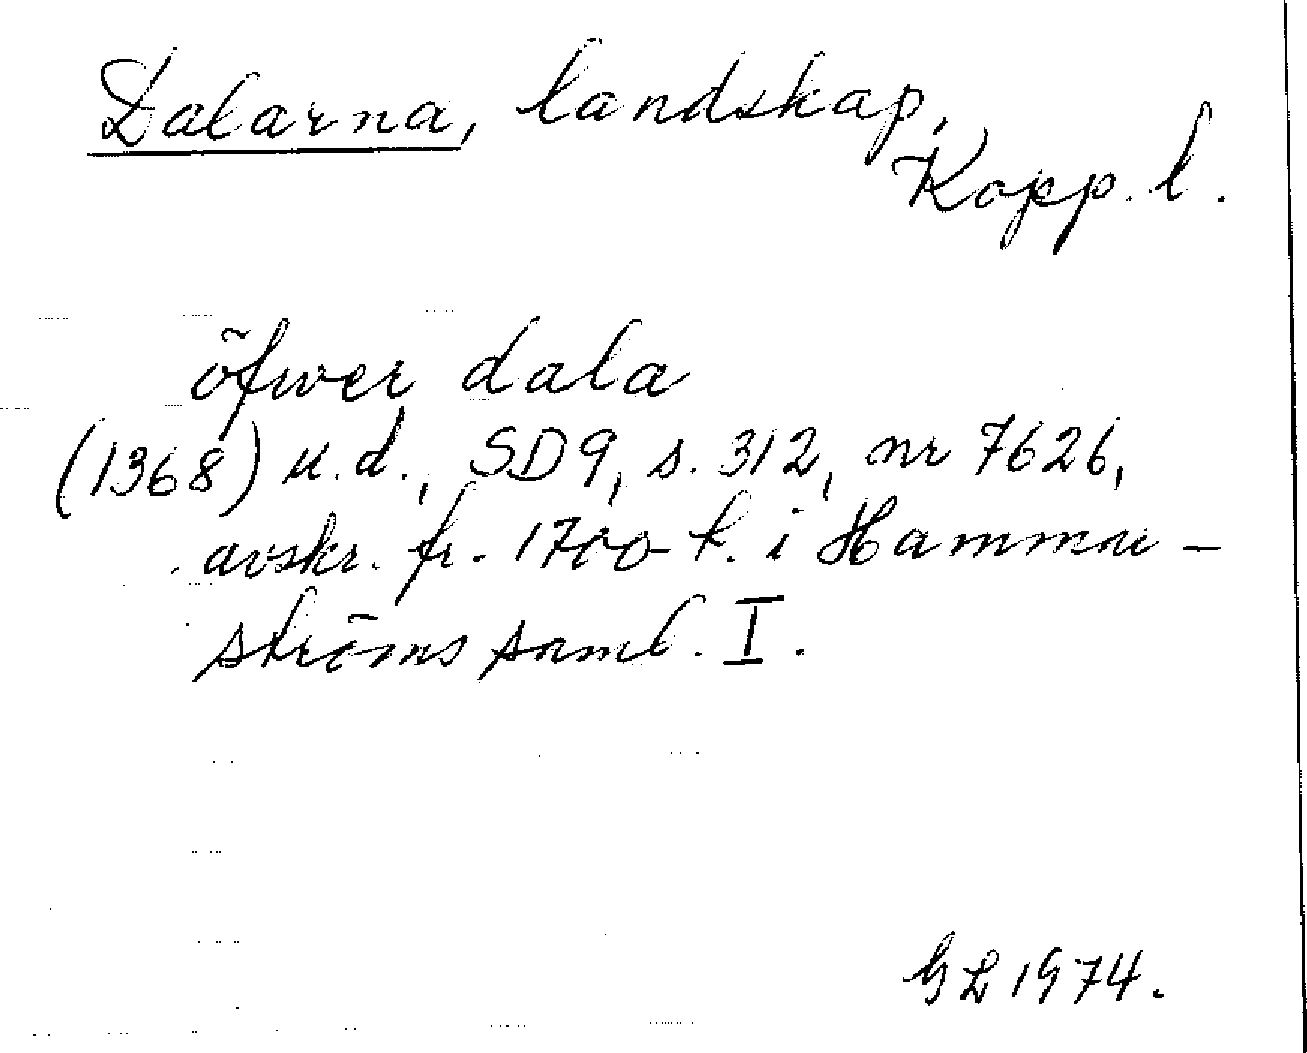 Dalarna, landskap,
Kopp. l.
öfwer dala
(1368) u.d., SD 9, s. 312, nr 7626,
avskr. fr. 1700-t. i Hammar-
ströms saml. I.
GL 1974.